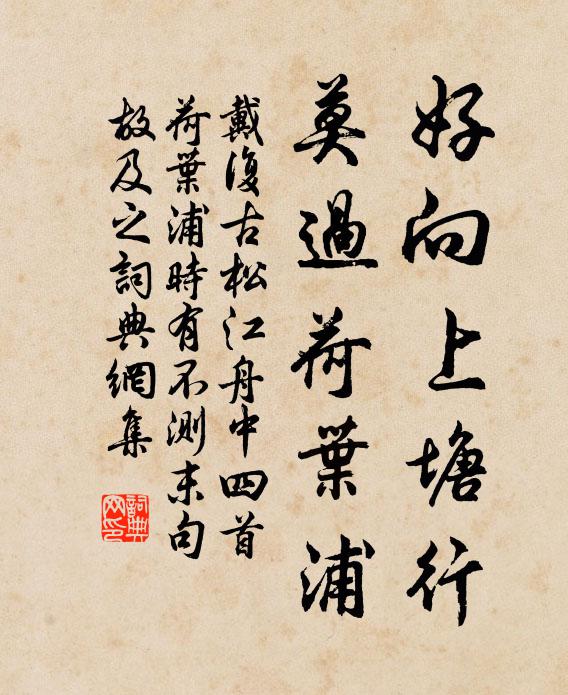 好向上塘行
莫過荷葉浦
戴復古松江舟中四首
荷葉浦時有不測末句
故及之詞典網集
詞典
网印